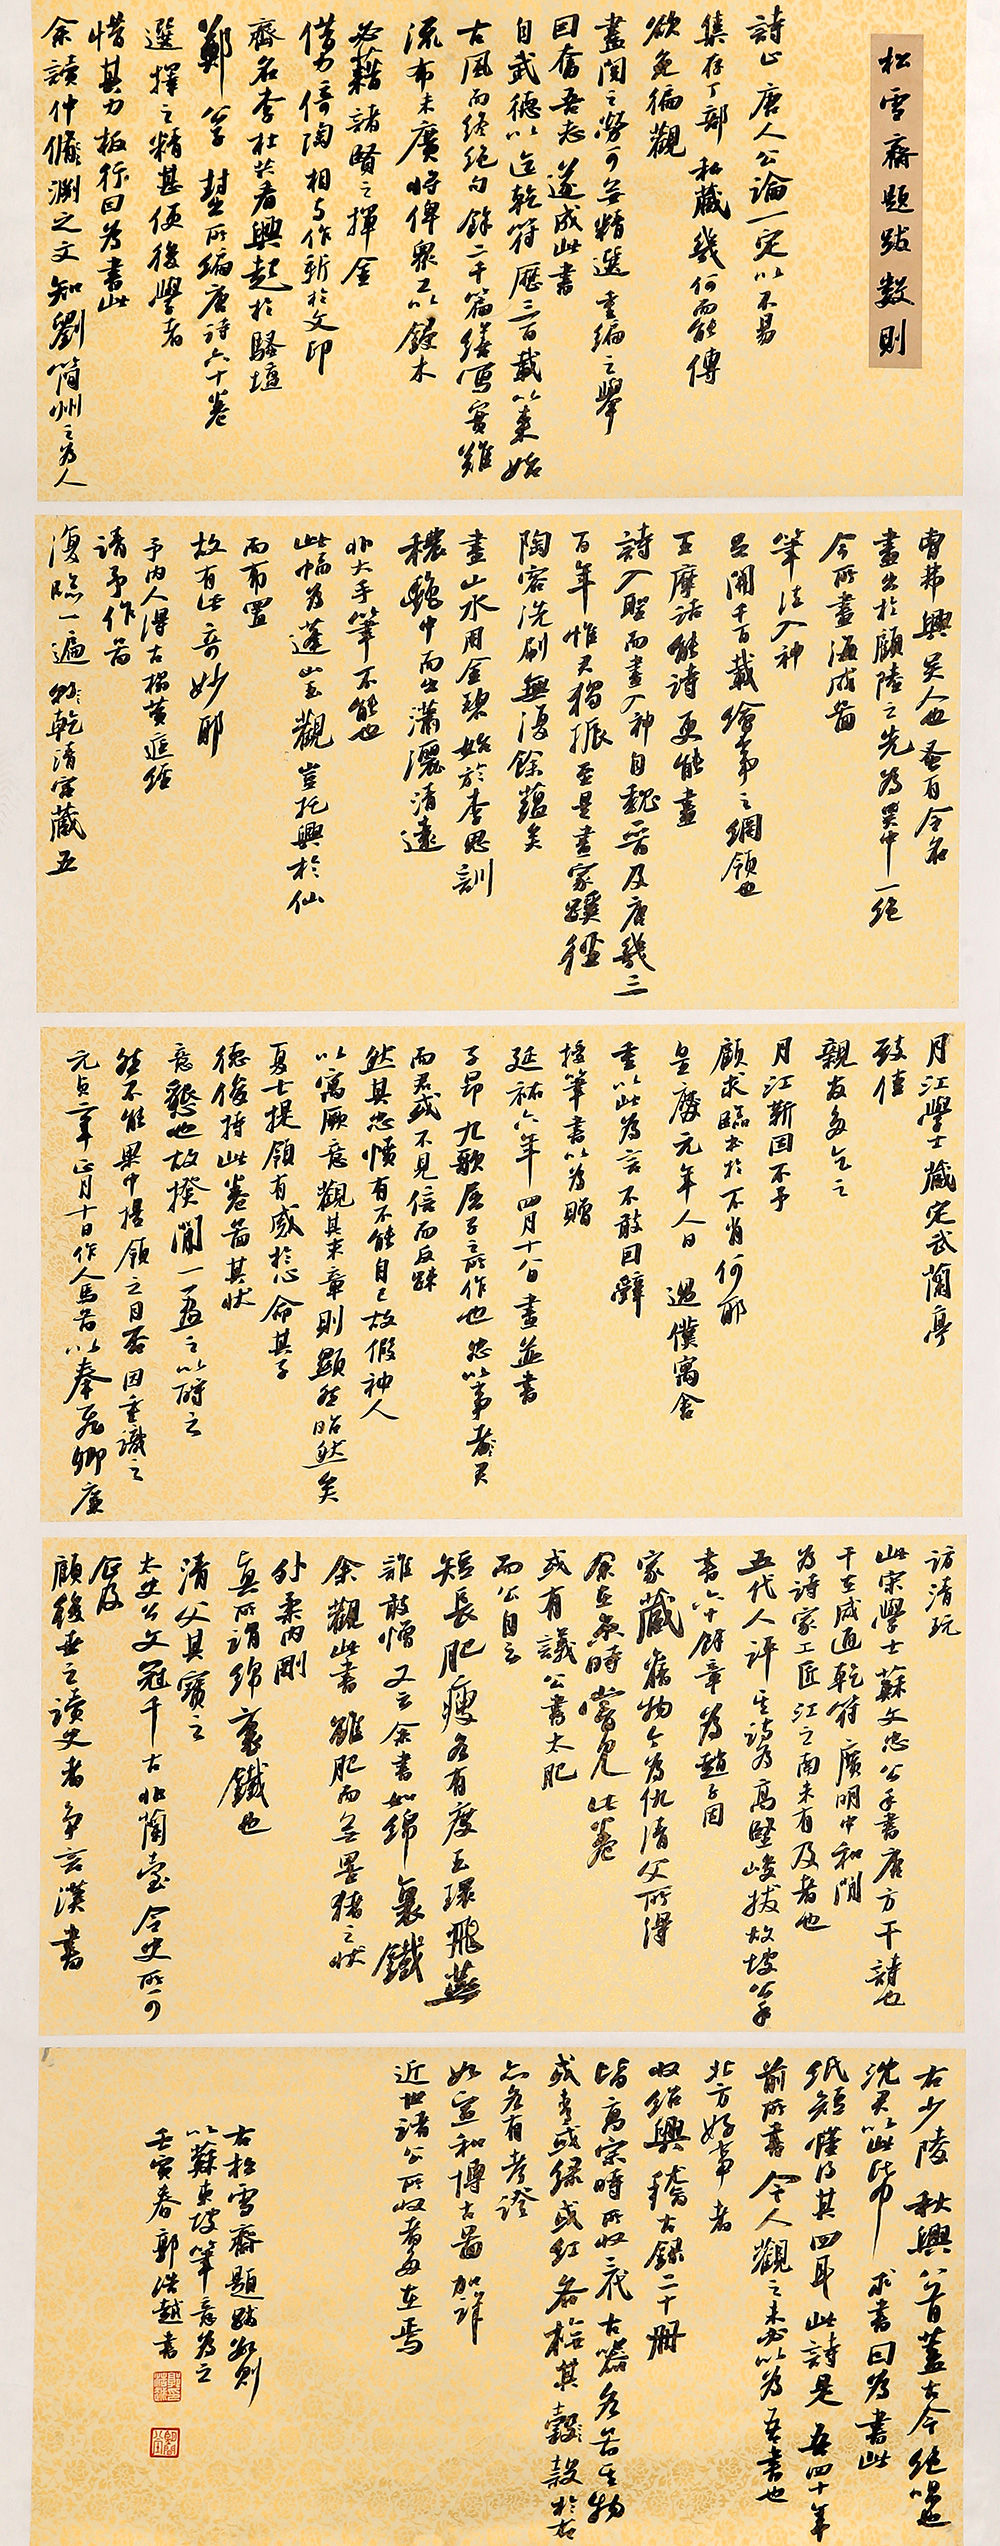 松雪齋題跋數則
詩止唐人公論一定以不易
集存丁部私藏幾何而能傳
欲免徧觀
盡閱之勞可無精選重編之舉
因奮吾志遂成此書
自武德以迄乾符歷三百載以來始
古風而終絕句餘二千篇繕寫實難
流布未廣將俾眾工以鋟木
必藉諸賢之揮金
借力倚陶相與作新於文印
齊名李杜共看興起於騷壇
鄭公掌封丘所編唐詩六十卷
選擇之精甚便後學者
惜其力板行因為書此
余讀仲脩淵之文知劉簡州之為人
曹弗興吳人也蚤有令名
畫出於顧陸之先為吳中一絕
今所畫海戍圖
筆法入神
足開千百載繪事之綱領也
王摩詰能詩更能畫
詩入聖而畫入神自魏晉及唐幾三
百年惟君獨振至是畫家蹊徑
陶容洗刷無復餘蘊矣
畫山水用金碧始於李思訓
穠豔中而出瀟灑清遠
非大手筆不能也
此幅為蓬山玉觀豈托興於仙
而有置
故有此奇妙耶
予內人得古搨黃庭經
請予作圖
復臨一遍於乾清宮藏五
月江學士藏定武蘭亭
致佳
親友多乞之
月江靳固不予
顧求臨本於不肖何耶
皇慶元年人日過僕寓舍
重以此為言不敢固辭
援筆書以為贈
延祐六年四月十八日畫並書
子昂九歌屈子之所作也忠以事君
而君或不見信而反疎
然其忠憤有不能自已故假神人
以寓厥意觀其末章則顯然昭然矣
夏士提領有感於心命其子
德俊持此卷圖其狀
意懇也故揆閒一一畫之以酹之
然不能果中提領之目否因重識之
元貞二年正月十日作人馬圖以奉飛卿廉
訪清玩
此宋學士蘇文忠公手書唐方干詩也
干在咸通乾符廣明中和間
為詩家工匠江之南未有及者也
五代人評其詩為高堅峻拔故坡公手
書六十餘章為趙子固
家藏舊物今為仇清父所得
余在燕時嘗見此卷
或有議公書太肥
而公自云
短長肥瘦各有度玉環飛燕
誰敢憎又云余書如綿裹鐵
余觀此書雖肥而無墨豬之狀
外柔內剛
真所謂綿裹鐵也
清父其寶之
太史公文冠千古非蘭臺令史所可
企及
顧後世之讀史者爭言漢書
右少陵秋興八首蓋古今絕唱也
沈君以此紙求書因為書此
紙短僅得其四耳此詩是吾四十年
前所書今人觀之未必以為吾書也
北方好事者
收紹興稽古錄二十冊
皆高宗時所收三代古器各圖其物
或青或綠或紅各檢其款於右
亦各有考證
如宣和博古圖加詳
近世諸公所收者多在焉
右松雪齋題跋數則
以蘇東坡筆意為之
壬寅春郭浩越書